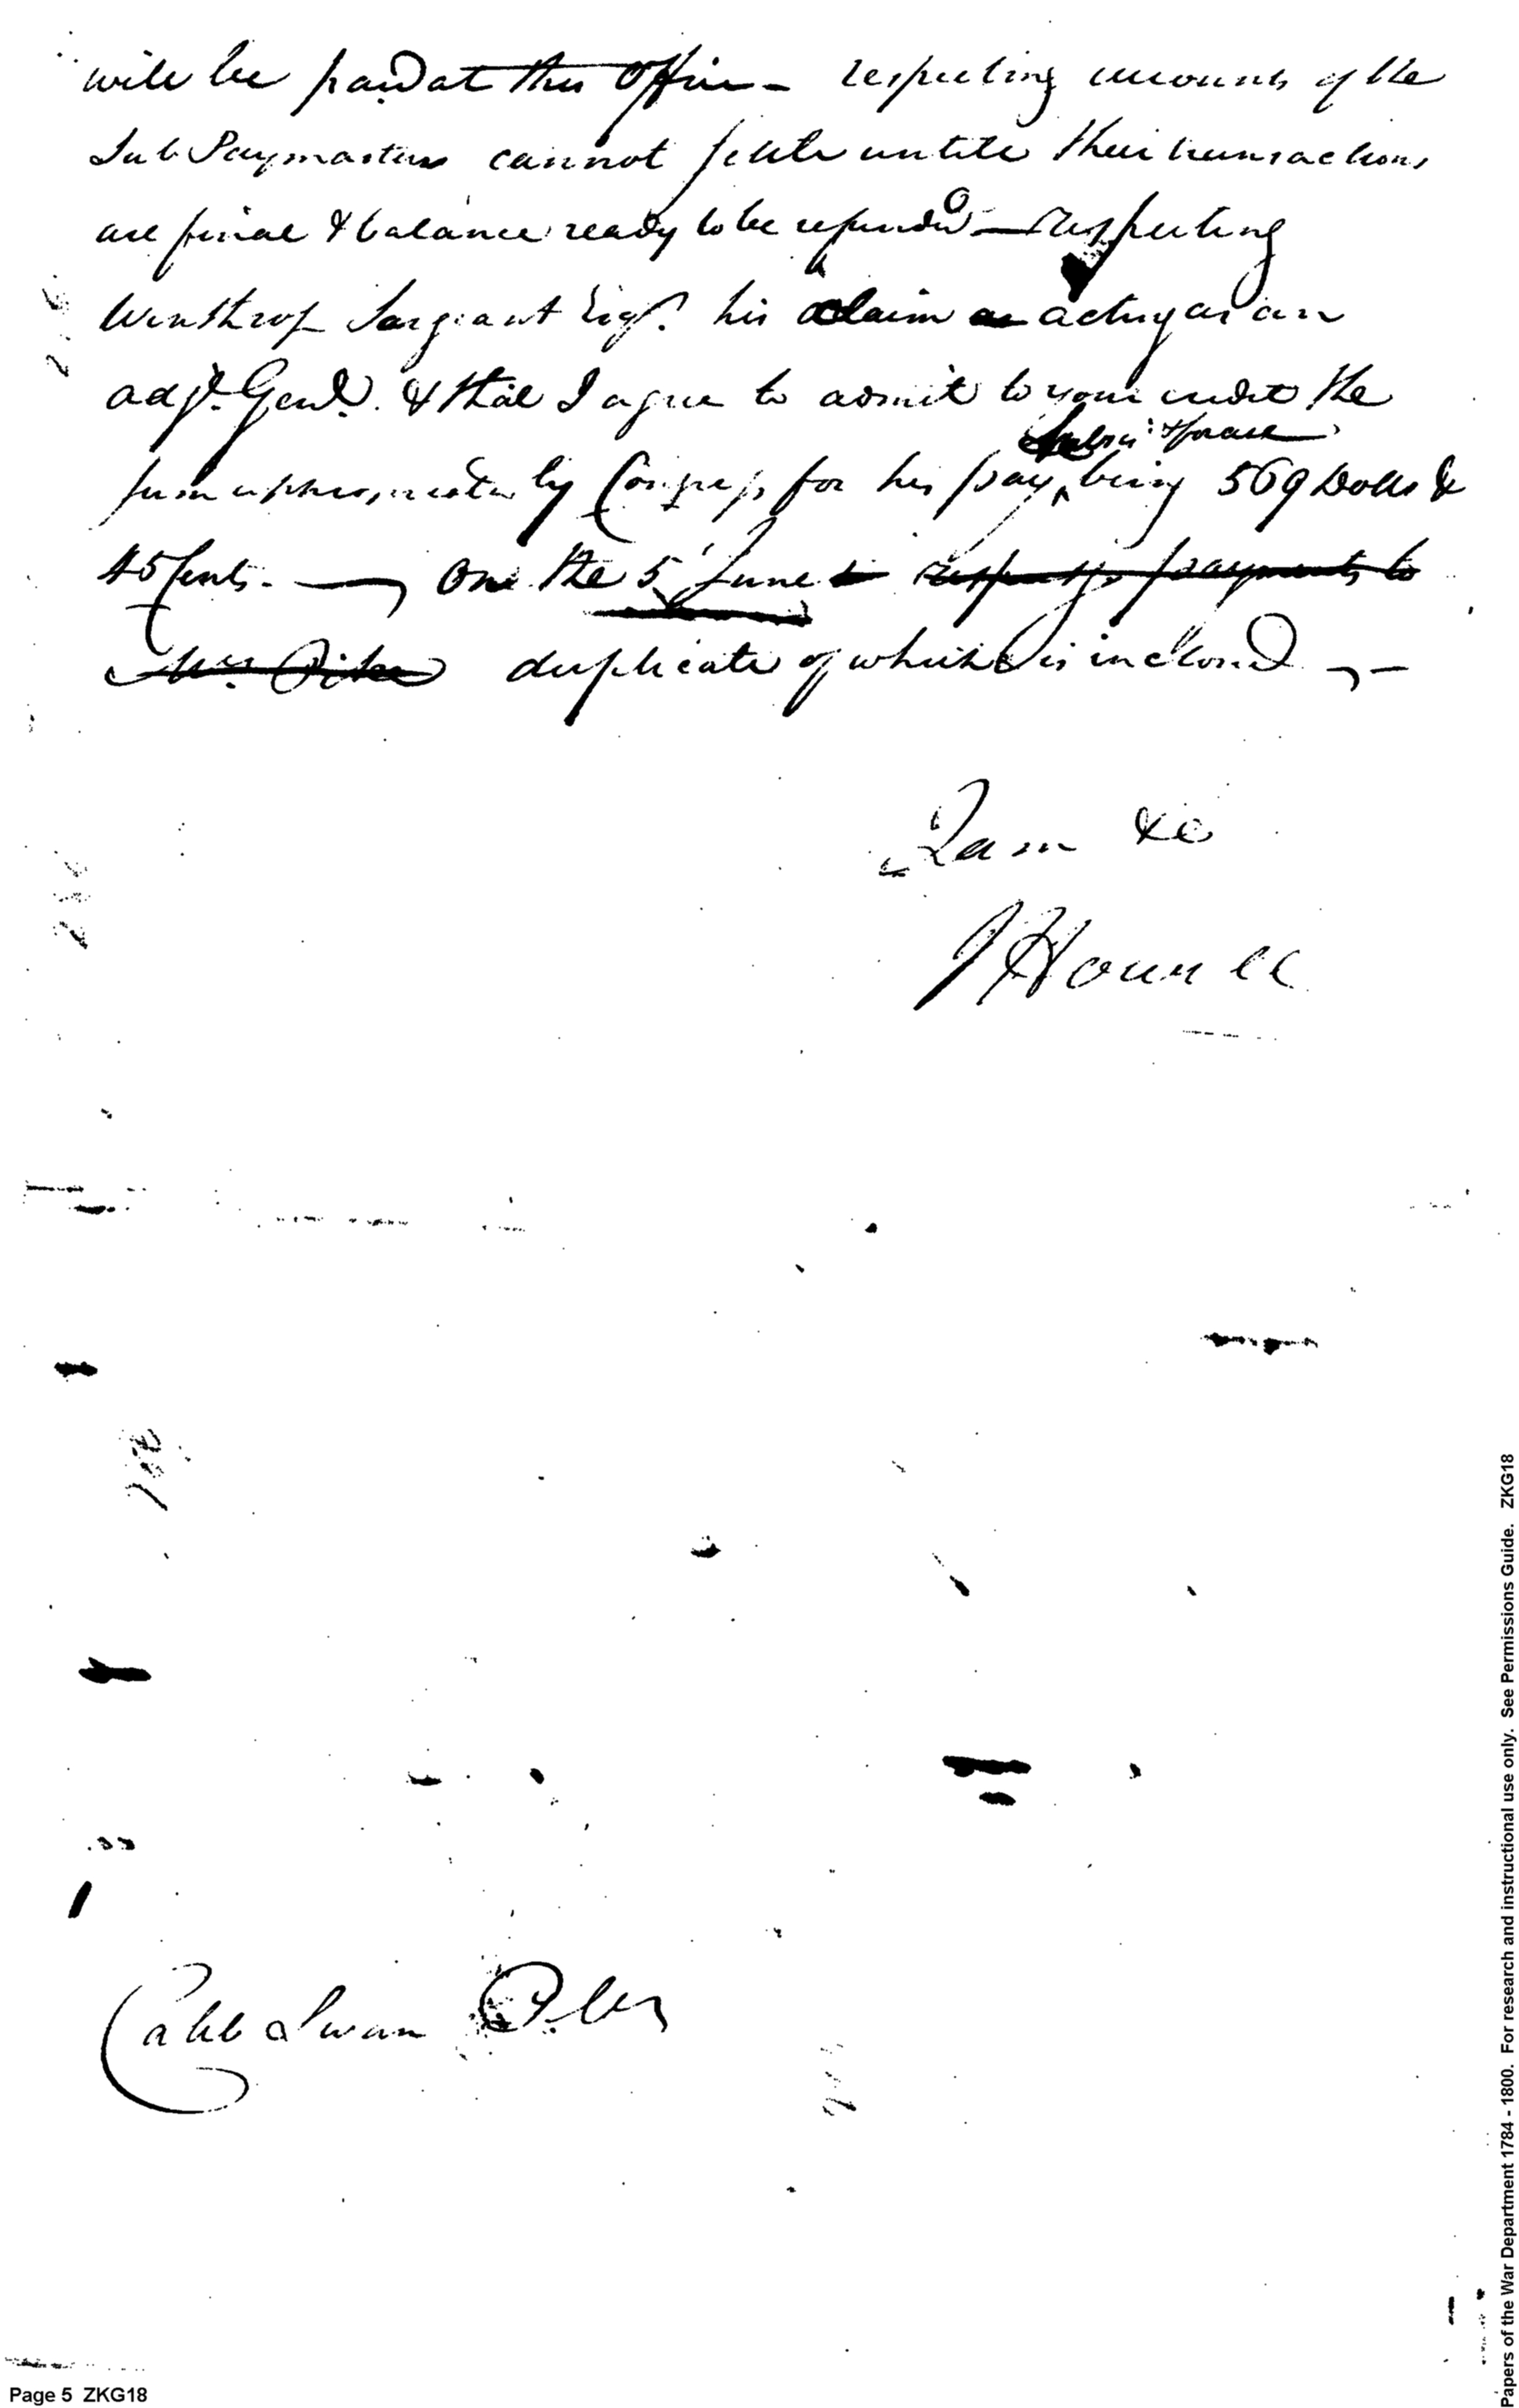 will be paid at this Office - respecting accounts of the
Sub Paymasters cannot settle untill their transactions
are final & balance ready to be refunded — respecting
Winthrop Sargeant Esqr. his claim as acting as an
adjt. Genl. & that I agree to admit to your credit the
Subsis: & forage
sum appropriated by Congress for his pay ^ being 569 Dolls &
45 Cents. — On the 5 June respectg. payments to
Mr. duplicate of which is inclosed —
I am &c
J Howell
Caleb Swan P.Mr
Page 5 ZKG18
Papers of the War Department 1784 - 1800. For research and instructional use only. See Permissions Guide. ZKG18